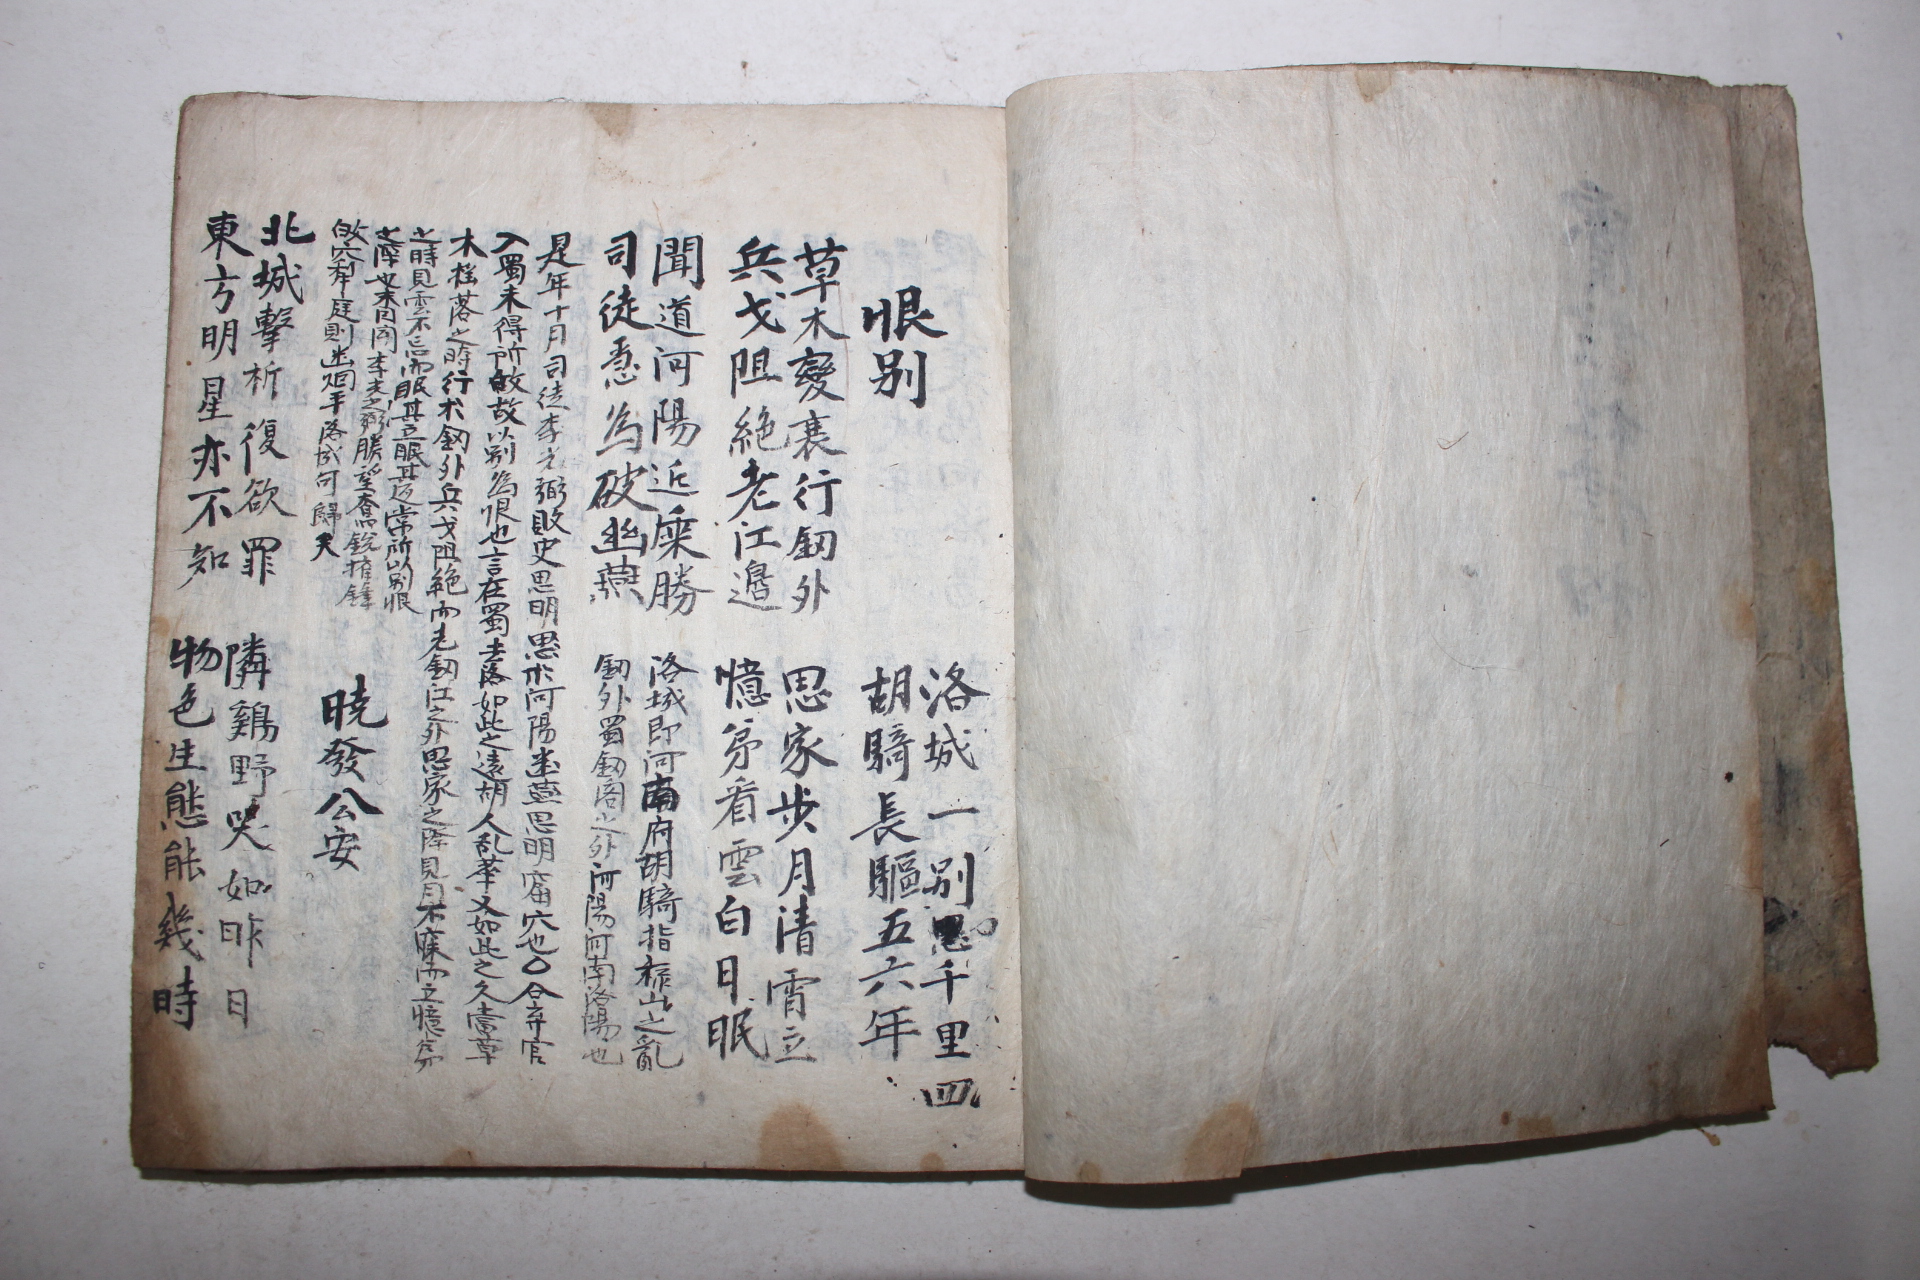 恨別
洛城一別千里四
胡騎長驅五六年
草木變衰行釰外
兵戈阻絶老江邊
思家步月清宵立
憶弟看雲白日眠
聞道河陽近乘勝
司徒急為破幽燕
洛城即河南府胡騎指祿山之亂
釰外蜀釰閣之外河陽河南洛陽也
是年十月司徒李光弼敗史思明思於河陽幽燕思明窟穴也○公弃官
入蜀未得所故故以別為恨也言在蜀去落如此之遠胡人乱華又如此之久當草
木搖落之時行木釰外兵戈阻絶而老釰江之外思家之降見月不寐而立憶弟
之時見雲不忘而眠其立眠甚反常所以別恨
之降也末李光弼勝望奮銳摧鋒
故穴犁庭則幽平洛城可歸矣
曉發公安
北城擊析復欲罪
東方明星亦不知
隣鷄野哭如昨日
物色生態能幾時